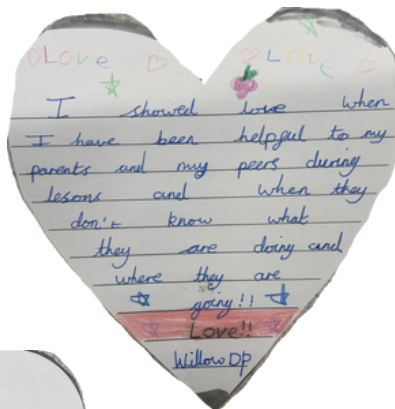 Love Love
I showed love when
I have been helpful to my
parents and my peers during
lesons and when they
don't know what
they are doing and
where they are
going!!
Love!!
Willow DP